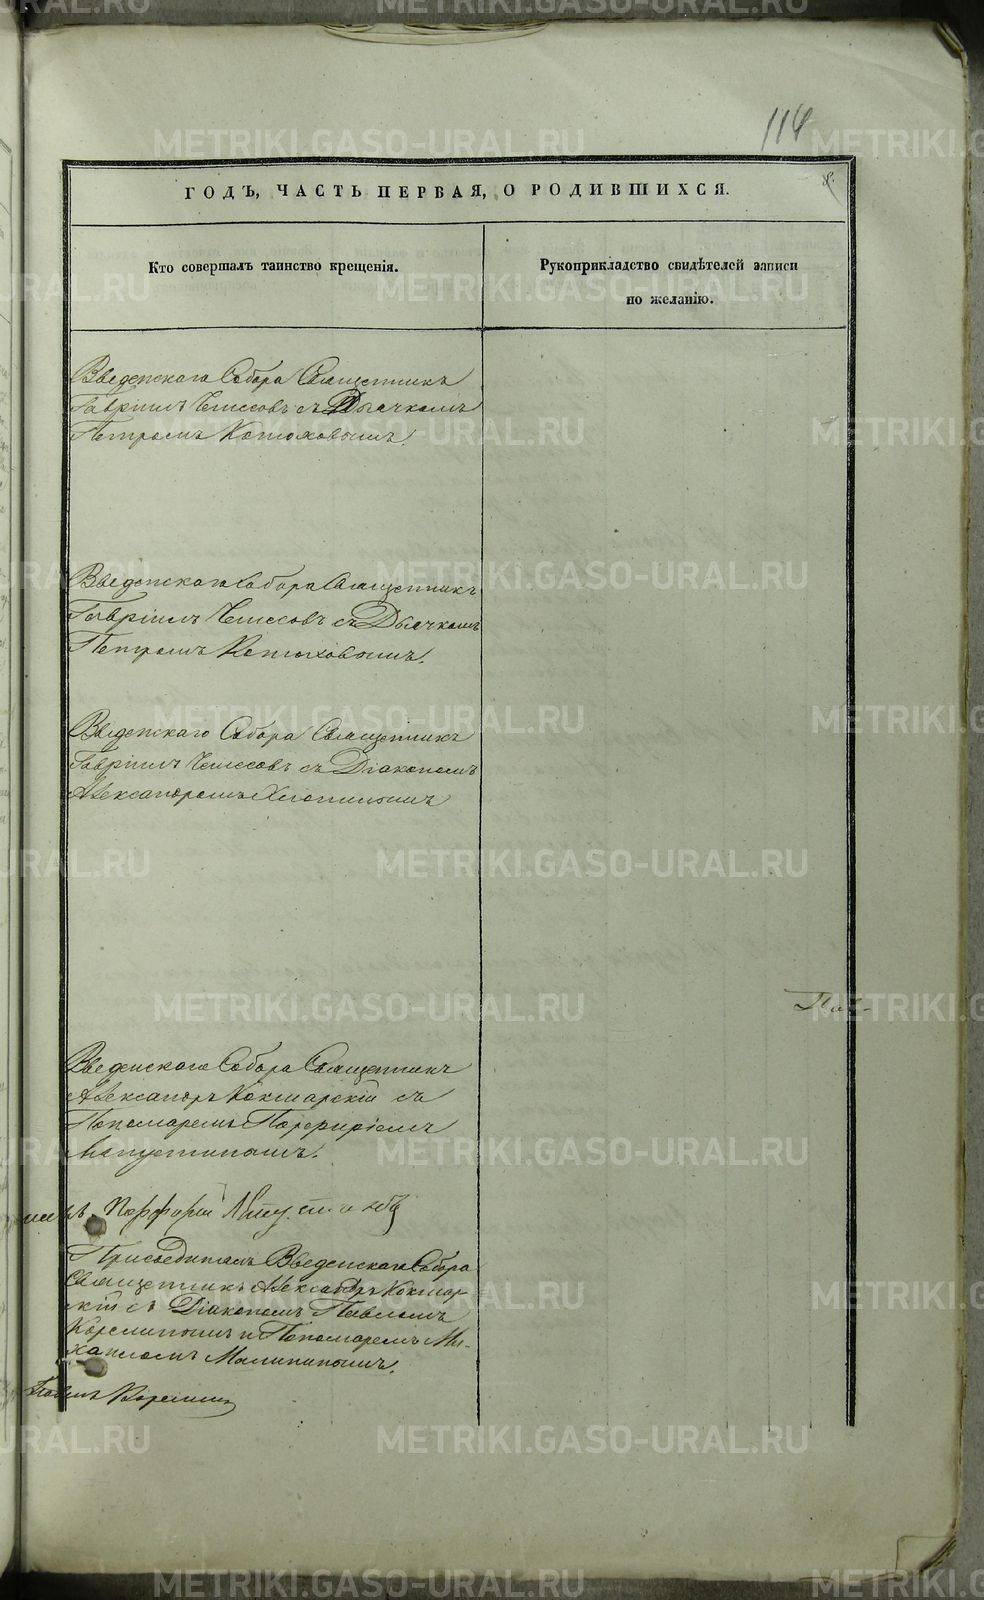 114
8.
ГОДЪ, ЧАСТЬ ПЕРВАЯ, О РОДИВШИХСЯ.
Кто совершалъ таинство крещенія.
Рукоприкладство свидѣтелей записи
по желанію.
Введенскаго Собора Священникъ
Гавріилъ съ Дьячкомъ
Петромъ Котюховымъ.
Введенскаго Собора Священникъ
Гавріилъ съ Дьячкомъ
Петромъ Котюховымъ.
Введенскаго Собора Священникъ
Гавріилъ съ Діакономъ
Александромъ
Введенскаго Собора Священникъ
Александръ Кокшарскій съ
Пономаремъ Порфиріемъ
Порфирій
Присоединилъ Введенскаго Собора
Священникъ Александръ Кокшар
скій съ Діакономъ Павломъ
Корелинымъ и Пономаремъ Ми-
хаиломъ Малининымъ.
Корелинъ
METRIKI.GASO-URAL.RU